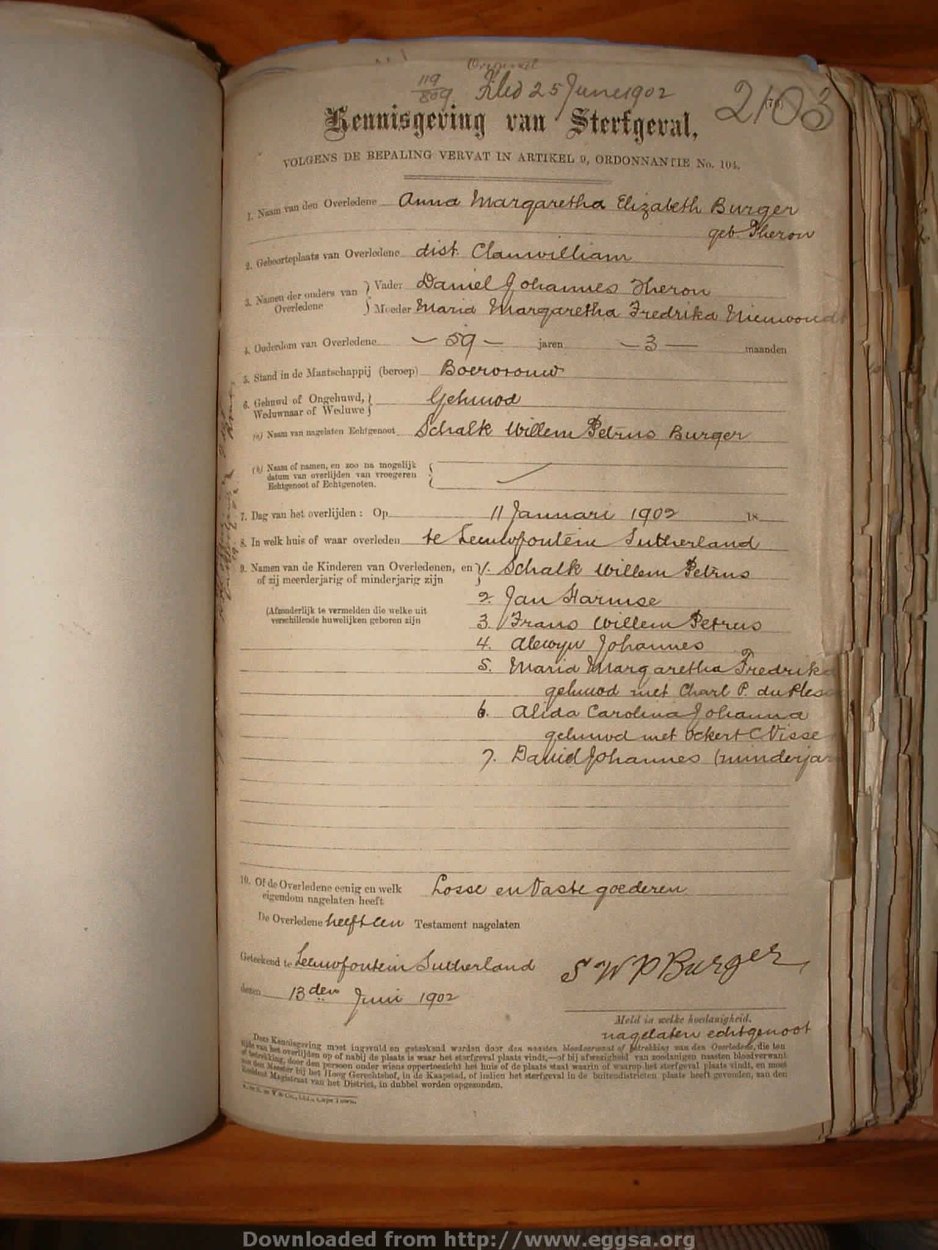 Original
119
809 Filed 25 June 1902
2103
Kennisgeving van Sterfgeval,
VOLGENS DE BEPALING VERVAT IN ARTIKEL 9, ORDONNANTIE No. 104.
1. Naam van den Overledene Anna Margaretha Elizabeth Burger
geb. Theron
2. Geboorteplaats van Overledene dist. Clanwilliam
3. Namen der ouders van Overledene } Vader Daniel Johannes Theron
Moeder Maria Margaretha Fredrika Nieuwoudt
4. Ouderdom van Overledene — 59 — jaren — 3 — maanden
5. Stand in de Maatschappij (beroep) Boervrouw
6. Gehuwd of Ongehuwd, Weduwnaar of Weduwe } Gehuwd
(a) Naam van nagelaten Echtgenoot Schalk Willem Petrus Burger
(b) Naam of namen, en zoo na mogelijk
datum van overlijden van vroegeren
Echtgenoot of Echtgenoten.
7. Dag van het overlijden: Op 11 Januari 1902 18
8. In welk huis of waar overleden te Leeuwfontein Sutherland
9. Namen van de Kinderen van Overledenen, en of zij meerderjarig of minderjarig zijn } 1. Schalk Willem Petrus
2. Jan Harmse
(Afzonderlijk te vermelden die welke uit
verschillende huwelijken geboren zijn
3. Frans Willem Petrus
4. Alewyn Johannes
5. Maria Margaretha Fredrika
gehuwd met Charl P. du Ples
6. Alida Carolina Johanna
gehuwd met Ockert C Visse
7. Daniel Johannes (minderjar
10. Of de Overledene eenig en welk eigendom nagelaten heeft Losse en Vaste goederen
De Overledene heeft een Testament nagelaten
Geteekend te Leeuwfontein Sutherland
S W P Burger
dezen 13den Juni 1902
Meld in welke hoedanigheid.
nagelaten echtgenoot
Deze Kennisgeving moet ingevuld en geteekend worden door den naasten bloedverwant of betrekking van den Overledene, die ten
tijde van het overlijden op of nabij de plaats is waar het sterfgeval plaats vindt,—of bij afwezigheid van zoodanigen naasten bloedverwant
of betrekking, door den persoon onder wiens oppertoezicht het huis of de plaats staat waarin of waarop het sterfgeval plaats vindt, en moet
aan den Meester bij het Hoog Gerechtshof, in de Kaapstad, of indien het sterfgeval in de buitendistricten plaats heeft gevonden, aan den
Resident Magistraat van het District, in dubbel worden opgezonden.
Downloaded from http://www.eggsa.org